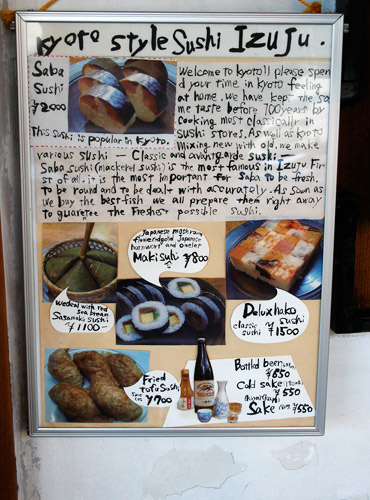 Kyoto style Sushi IZUJU.
Saba
Sushi
¥2000
This sushi is popular in Kyoto.
Welcome to kyoto!I please spen
d your time in kyoto feeling
at home. We have kept the sa
me taste before 100 years by
cooking most classically in
sushi stores. As well as kyoto
mixing new with old, we make
various sushi - Classic and avantgarde sushi -
Saba sushi (mackerel sushi) is the most famous in Izuju Fir
st of all, it is the most important for Saba to be fresh,
to be round and to be dealt with accurately. As soon as
we buy the best fish we all prepare them right away
to guarantee the freshest possible sushi.
Japanese mushroom
flavored gold Japanese
and omelet
Maki Sushi ¥800
with red
sea bream
Sasamaki sushi
¥1100-
Deluxhako
classic sushi
sushi ¥1500
Fried
tofu sushi
5 pieces ¥700
Bottled beer
¥650
Cold sake
¥550
Sake ¥550